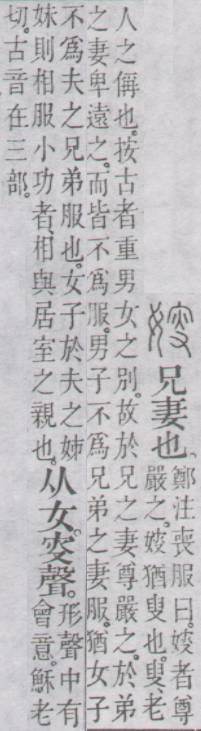 㛮
兄妻也。
鄭注喪服曰。嫂者尊
嚴之。嫂猶叟也。叟、老
人之偁也。按古者重男女之別。故於兄之妻尊嚴之。於弟
之妻卑遠之。而皆不爲服。男子不爲兄弟之妻服。猶女子
不爲夫之兄弟服也。女子於夫之姊
妹則相服小功者、相與居室之親也。
从女。叜聲。
形聲中有
會意。穌老
切。古音在三部。